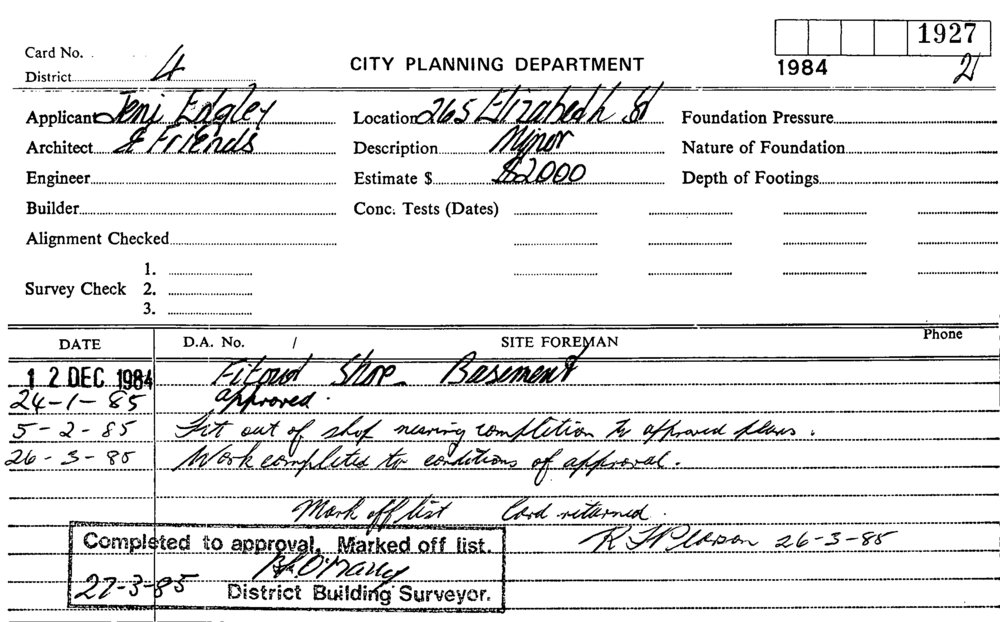 1927
Card No.
CITY PLANNING DEPARTMENT
1984
2
District 4
Applicant Jeni Edgley Location 265 Elizabeth St Foundation Pressure
Architect & Friends Description Minor Nature of Foundation
Engineer Estimate $ $2000 Depth of Footings
Builder Conc. Tests (Dates)
Alignment Checked
1.
Survey Check 2.
3.
DATE D.A. No. / SITE FOREMAN Phone
12 DEC 1984 Fitout Shop Basement
24-1-85 approved.
5-2-85 Fit out of shop nearing completion to approved plans.
26-3-85 Work completed to conditions of approval.
Mark off list Card returned.
Completed to approval. Marked off list. 26-3-85
27-3-85 District Building Surveyor.